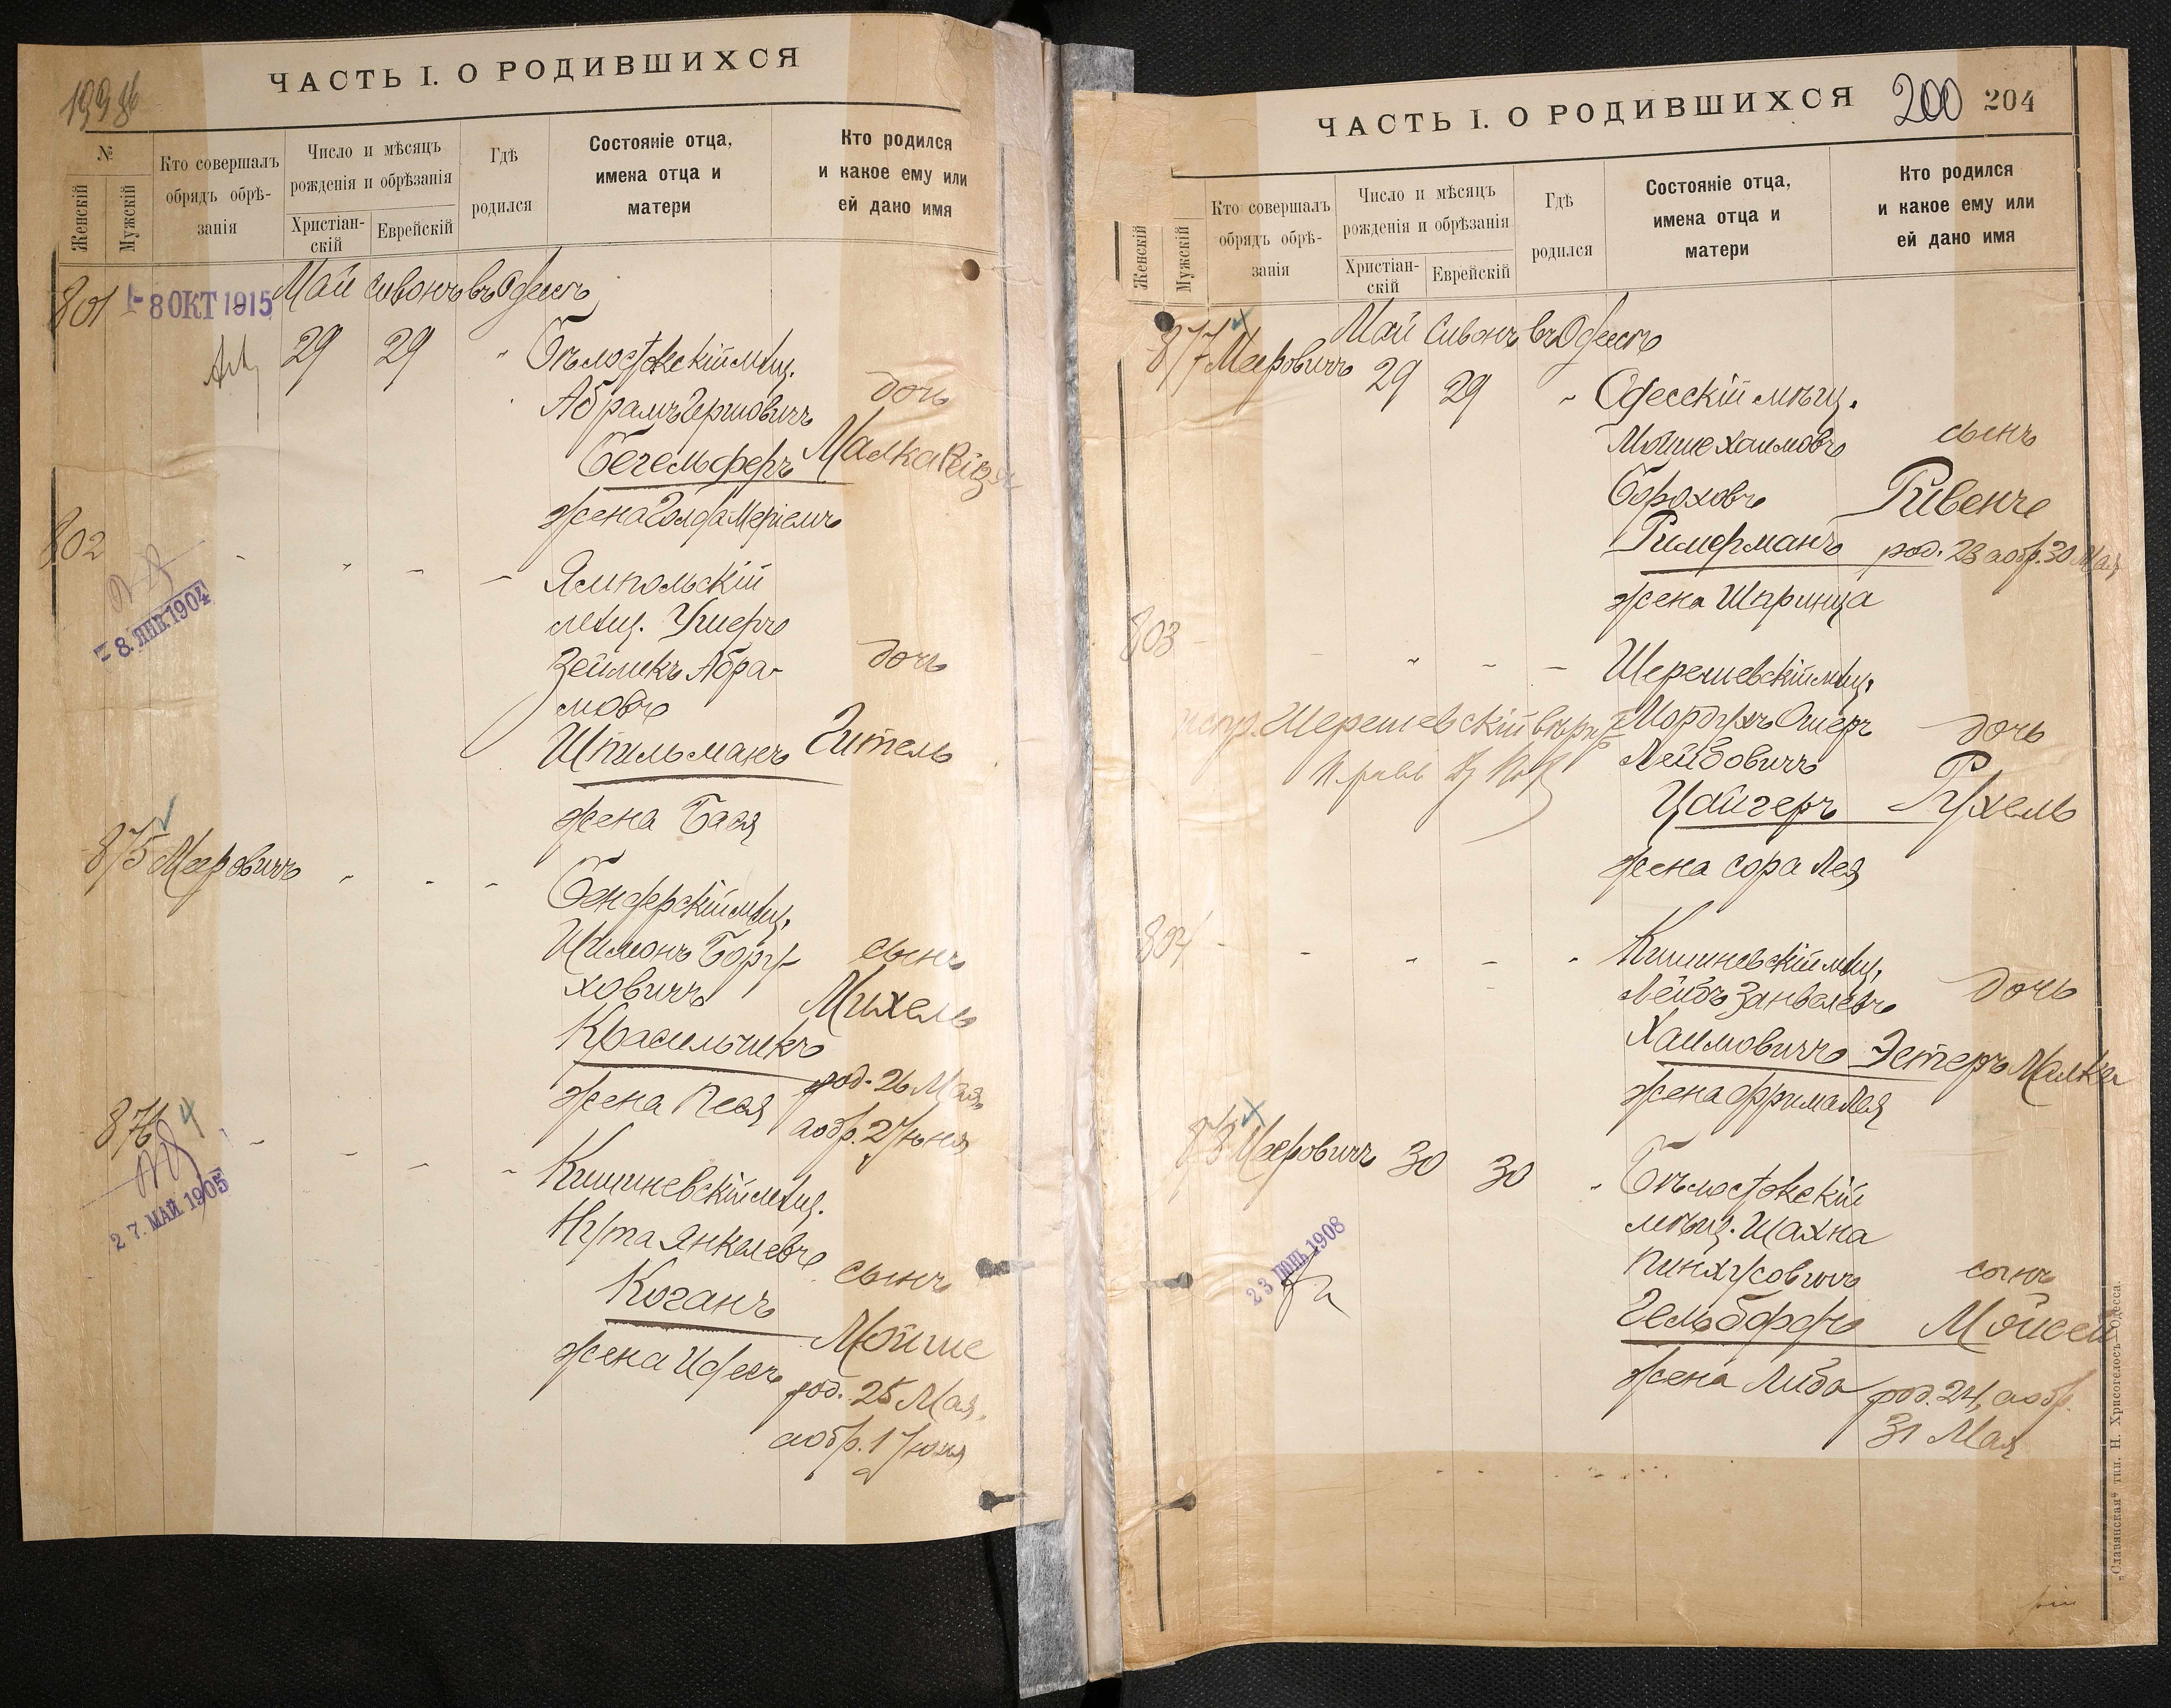 199 об
ЧАСТЬ I. О РОДИВШИХСЯ
№
Женскій
Мужскій
Кто совершалъ
обрядъ обрѣ-
занія
Число и мѣсяцъ
рожденія и обрѣзанія
Христіан-
скій
Еврейскій
Гдѣ
родился
Состояніе отца,
имена отца и
матери
Кто родился
и какое ему или
ей дано имя
801
8 ОКТ 1915
Май Сивонъ въ Одессѣ
29 29 "
Бѣлостокскій мѣщ.
Абрамъ Гершовичъ
дочь
Бегельферъ Малка Рейзя
жена Голда Меріемъ
802
8. ЯНВ. 1904
Ямпольскій
мѣщ. Ушеръ
Зейликъ Абра-
мовъ
дочь
Шпильманъ Гитель
жена Бася
875 Мееровичъ
Бендерскій мѣщ.
Шимонъ Бору-
ховичъ
сынъ
Михель
Красильчикъ
род. 26 Мая
жена Песя
а обр. 2 Іюня
876
27. МАЙ 1905
Кишиневскій мѣщ.
Нута Янкелевъ
сынъ
Коганъ
Мойше
жена Идесъ
род. 25 Мая,
а обр. 1 Іюня
ЧАСТЬ I. О РОДИВШИХСЯ
200 204
Женскій
Мужскій
Кто совершалъ
обрядъ обрѣ-
занія
Число и мѣсяцъ
рожденія и обрѣзанія
Христіан-
скій
Еврейскій
Гдѣ
родился
Состояніе отца,
имена отца и
матери
Кто родился
и какое ему или
ей дано имя
877 Мееровичъ
Май Сивонъ въ Одессѣ
29 29
Одесскій мѣщ.
Мойше Хаимовъ
сынъ
Бороховъ
Рувенъ
Римерманъ
род. 23 а обр. 30 Мая
жена Шпринца
803
Шерешевскій мѣщ.
испр. Шерешевскій вѣрно
Мордухъ Ошеръ
дочь
Лейбовичъ
Цайгеръ Рухель
жена Сора Лея
804
Кишиневскій мѣщ.
Лейбъ Занвелевъ
дочь
Хаимовичъ Эстеръ Малка
жена Фрима Лея
878 Мееровичъ 30 30
23 ІЮНЬ 1908
Бѣлостокскій
мѣщ. Шахна
Пинхусовичъ
сынъ
Гельбордъ Мойсей
жена Либа
род. 24, а обр.
31 Мая
„Славянская" тип. Н. Хрисогелосъ, Одесса.